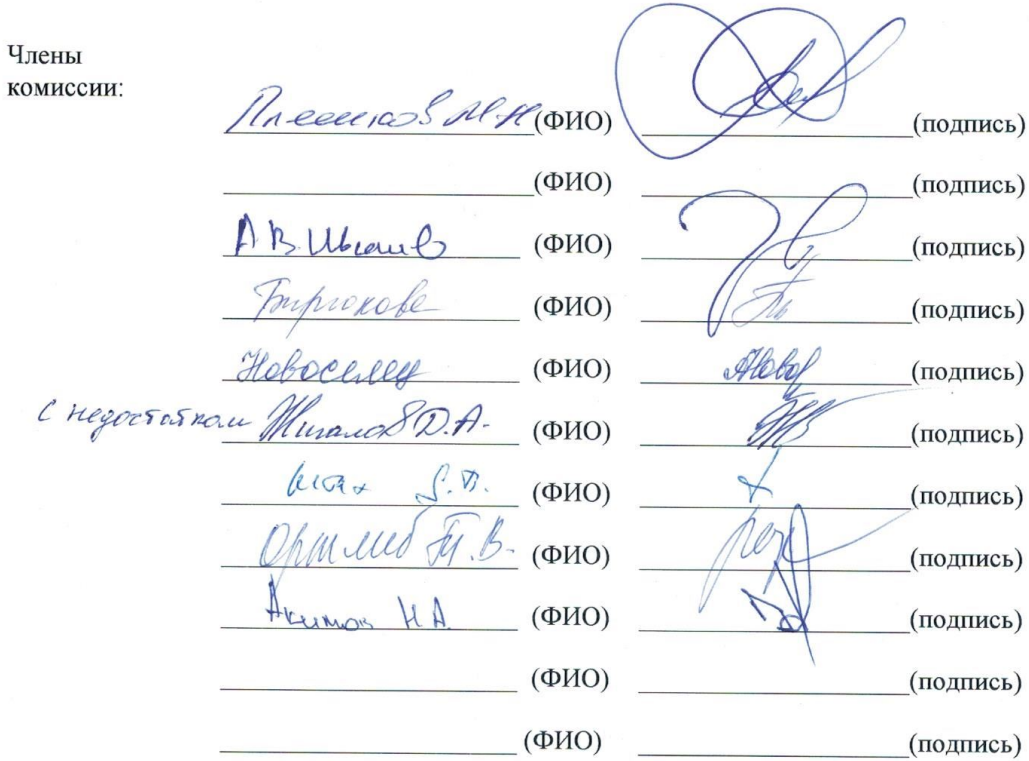 Члены
комиссии:
Плешков М.Н (ФИО) (подпись)
(ФИО) (подпись)
А.В. (ФИО) (подпись)
Бирюкова (ФИО) (подпись)
Новоселец (ФИО) (подпись)
с недостатком Жигалов Д.А. (ФИО) (подпись)
(ФИО) (подпись)
Ортлиб Т.В. (ФИО) (подпись)
Акимов Н.А. (ФИО) (подпись)
(ФИО) (подпись)
(ФИО) (подпись)